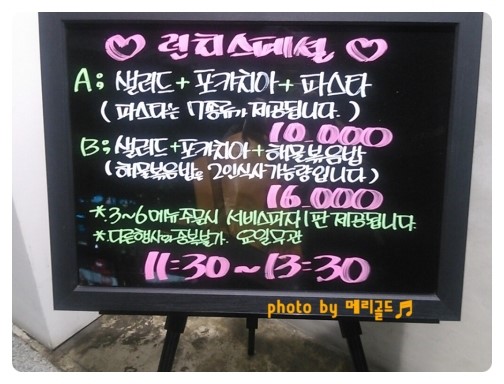 ♡ 런치스페셜 ♡
A; 샐러드+포카치아+파스타
( 파스타는 17종류가 제공됩니다. )
10,000
B; 샐러드+포카치아+해물볶음밥
(해물볶음밥은 2인식사가능량입니다)
16,000
*. 3~6메뉴주문시 서비스피자 1판 제공됩니다.
*. 다른행사와중복불가. 요일무관
11:30~13:30
photo by 메리골드♬